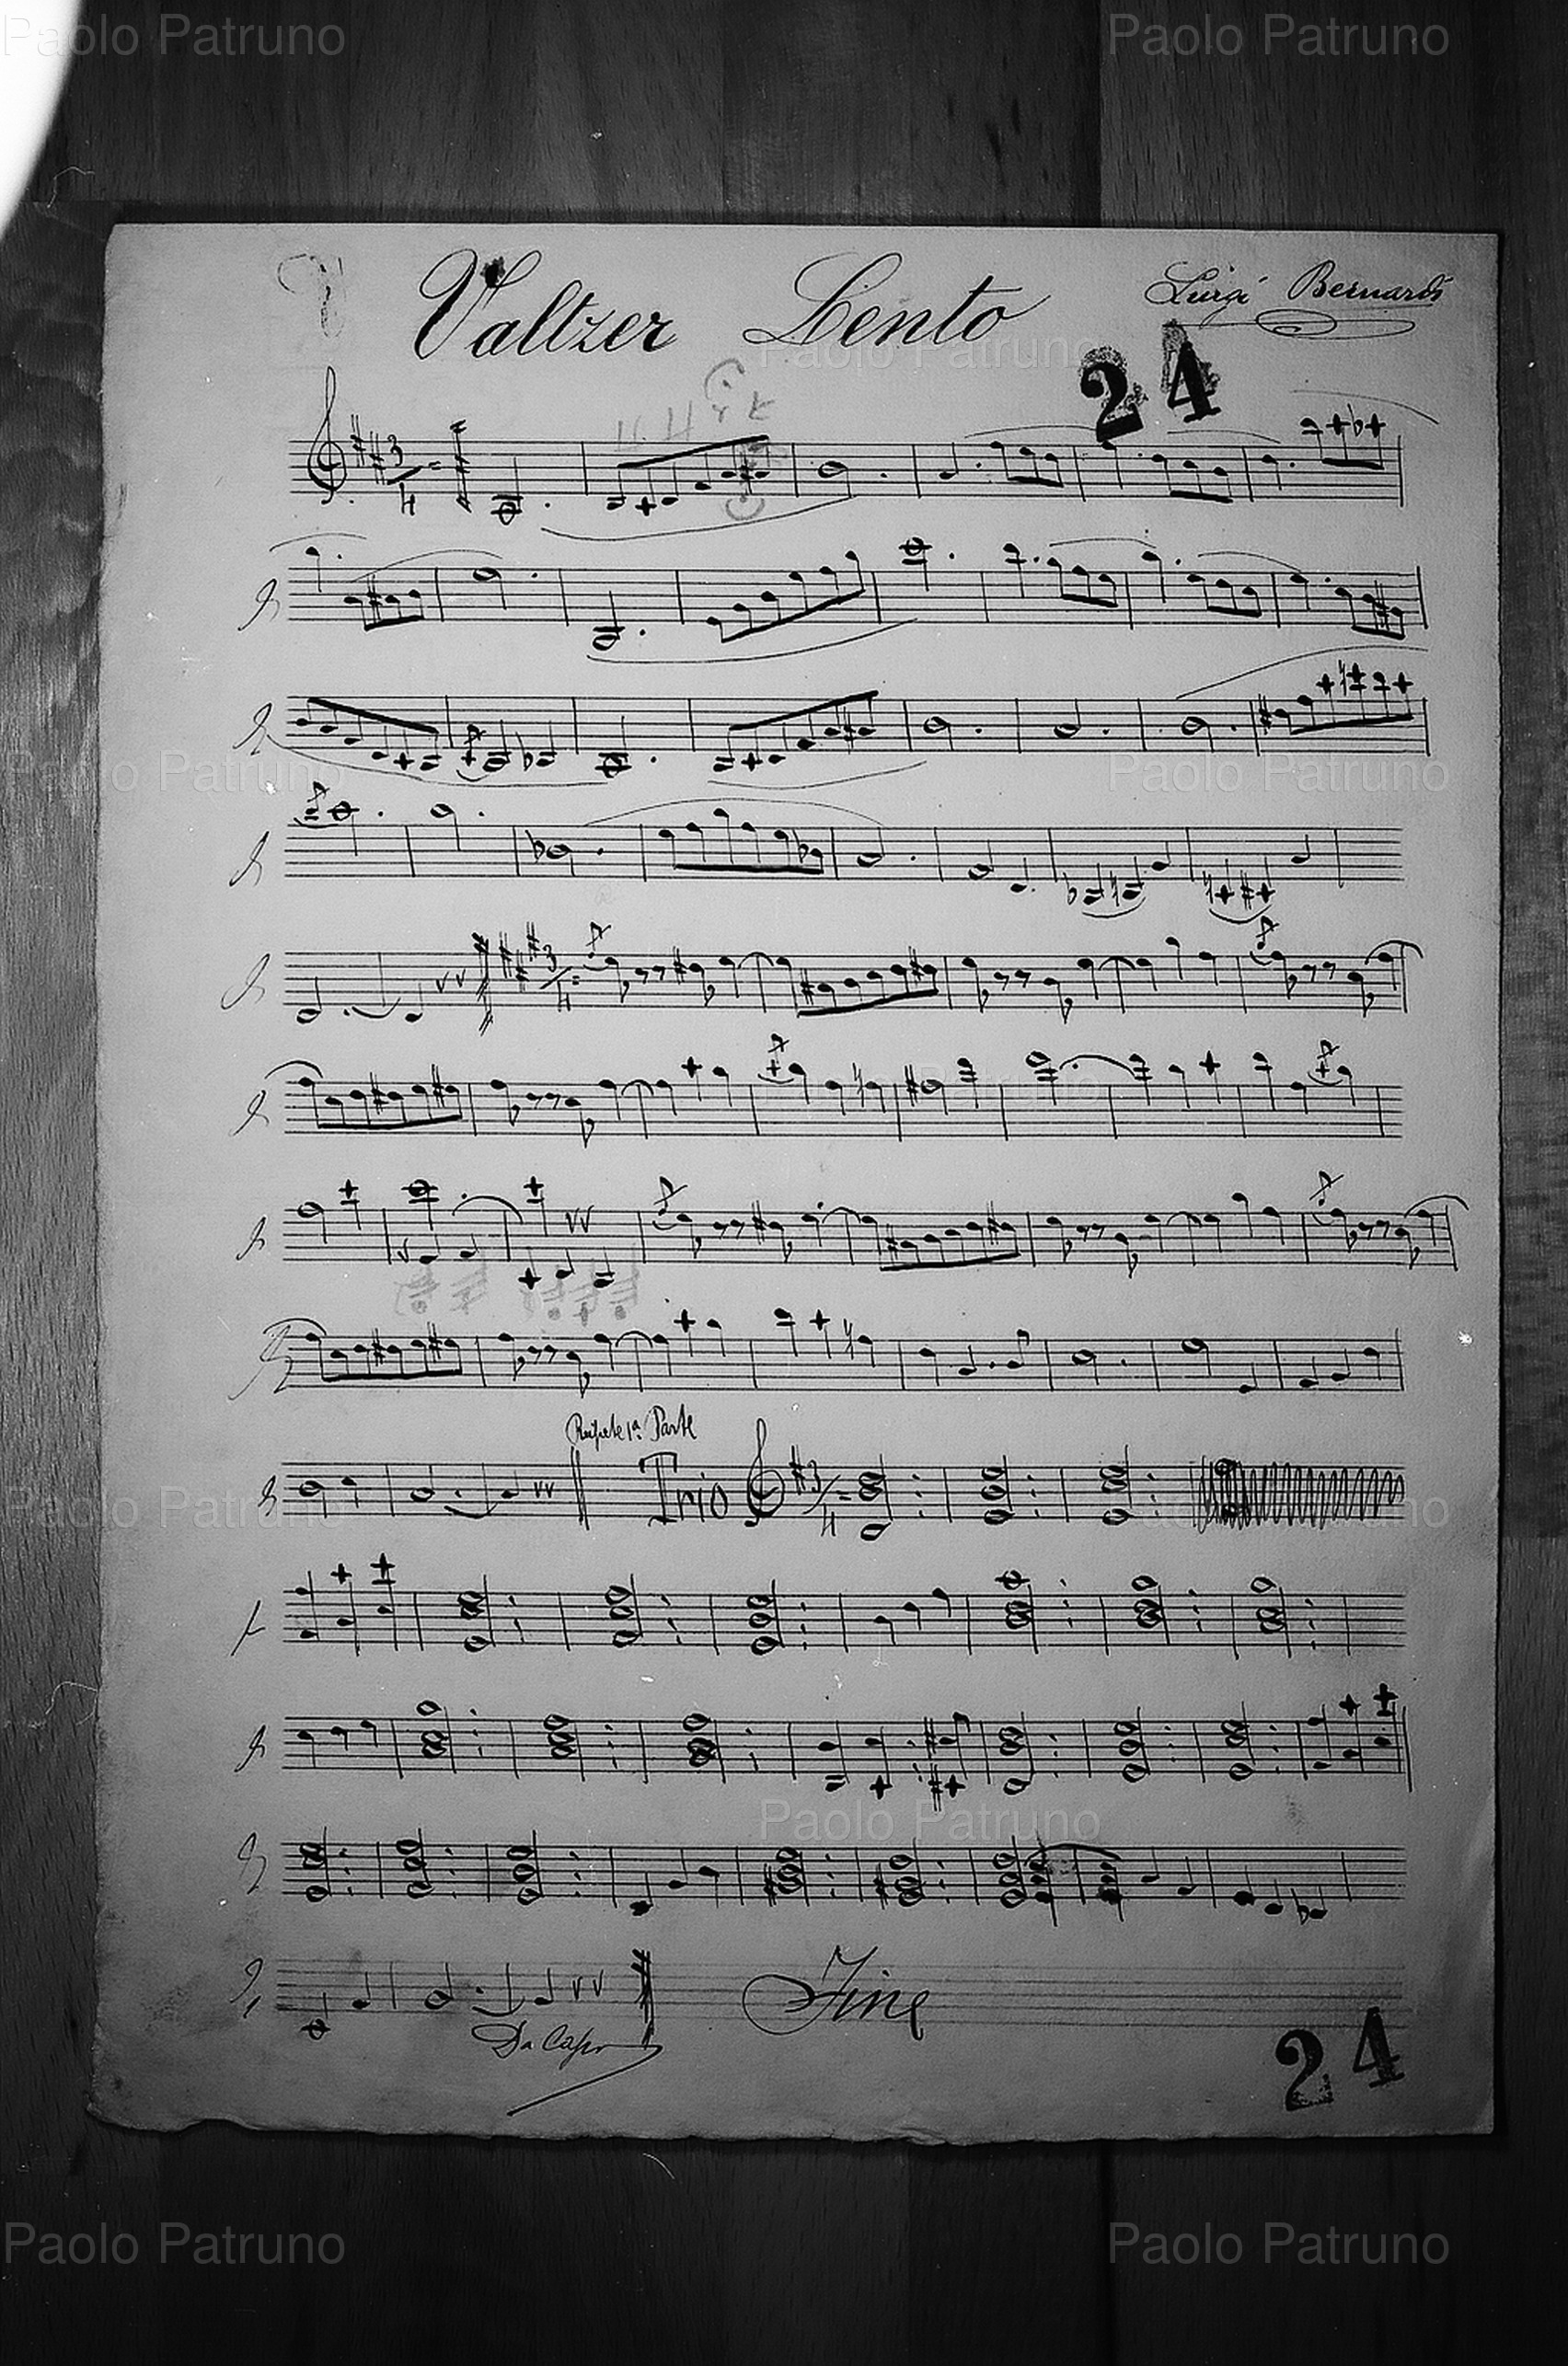 Paolo Patruno Paolo Patruno
Valtzer Lento Luigi Bernardi
Paolo Patruno
24
3
4
Paolo Patruno Paolo Patruno
3
4
Paolo Patruno
1ª Parte
Trio 3
4
Paolo Patruno Paolo Patruno
Paolo Patruno
Fine
Da Capo
24
Paolo Patruno Paolo Patruno